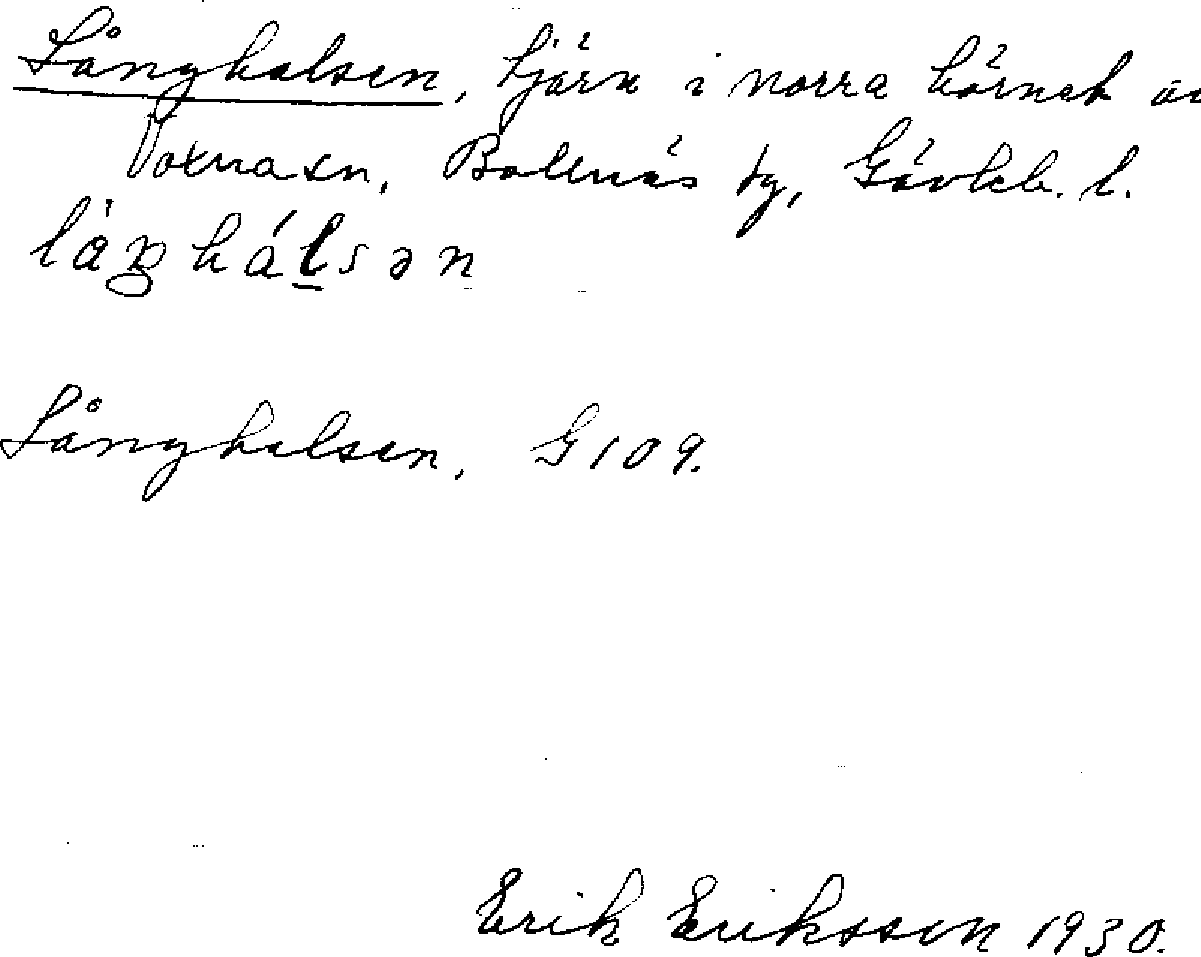 Långhalsen, tjärn i norra hörnet av
Voxna sn, Bollnäs tg, Gävleb. l.
låŋhálsən
Långhalsen, G 109.
Erik Eriksson 1930.